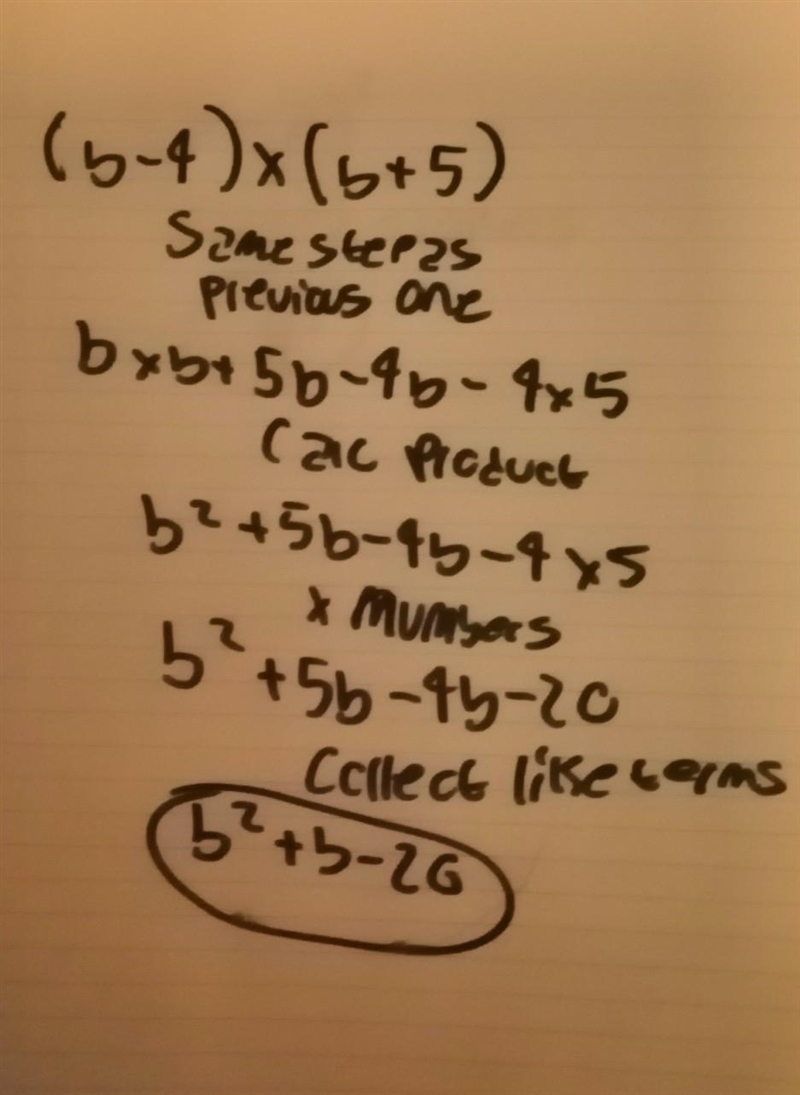 (b-4)×(b+5)
Same step as
previous one
b×b+5b-4b-4×5
Calc Product
b²+5b-4b-4×5
× Numbers
b²+5b-4b-20
Collect like terms
b²+b-20